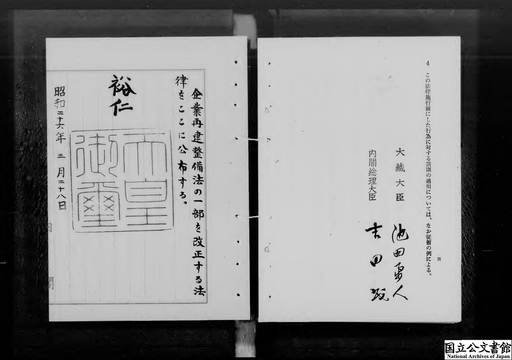 4 この法律施行前にした行為に対する罰則の適用については、なお従前の例による。
大蔵大臣
池田勇人
内閣総理大臣
吉田茂
企業再建整備法の一部を改正する法
律をここに公布する。
裕仁
天皇
御璽
昭和二十六年三月二十八日
内閣
国立公文書館
National Archives of Japan